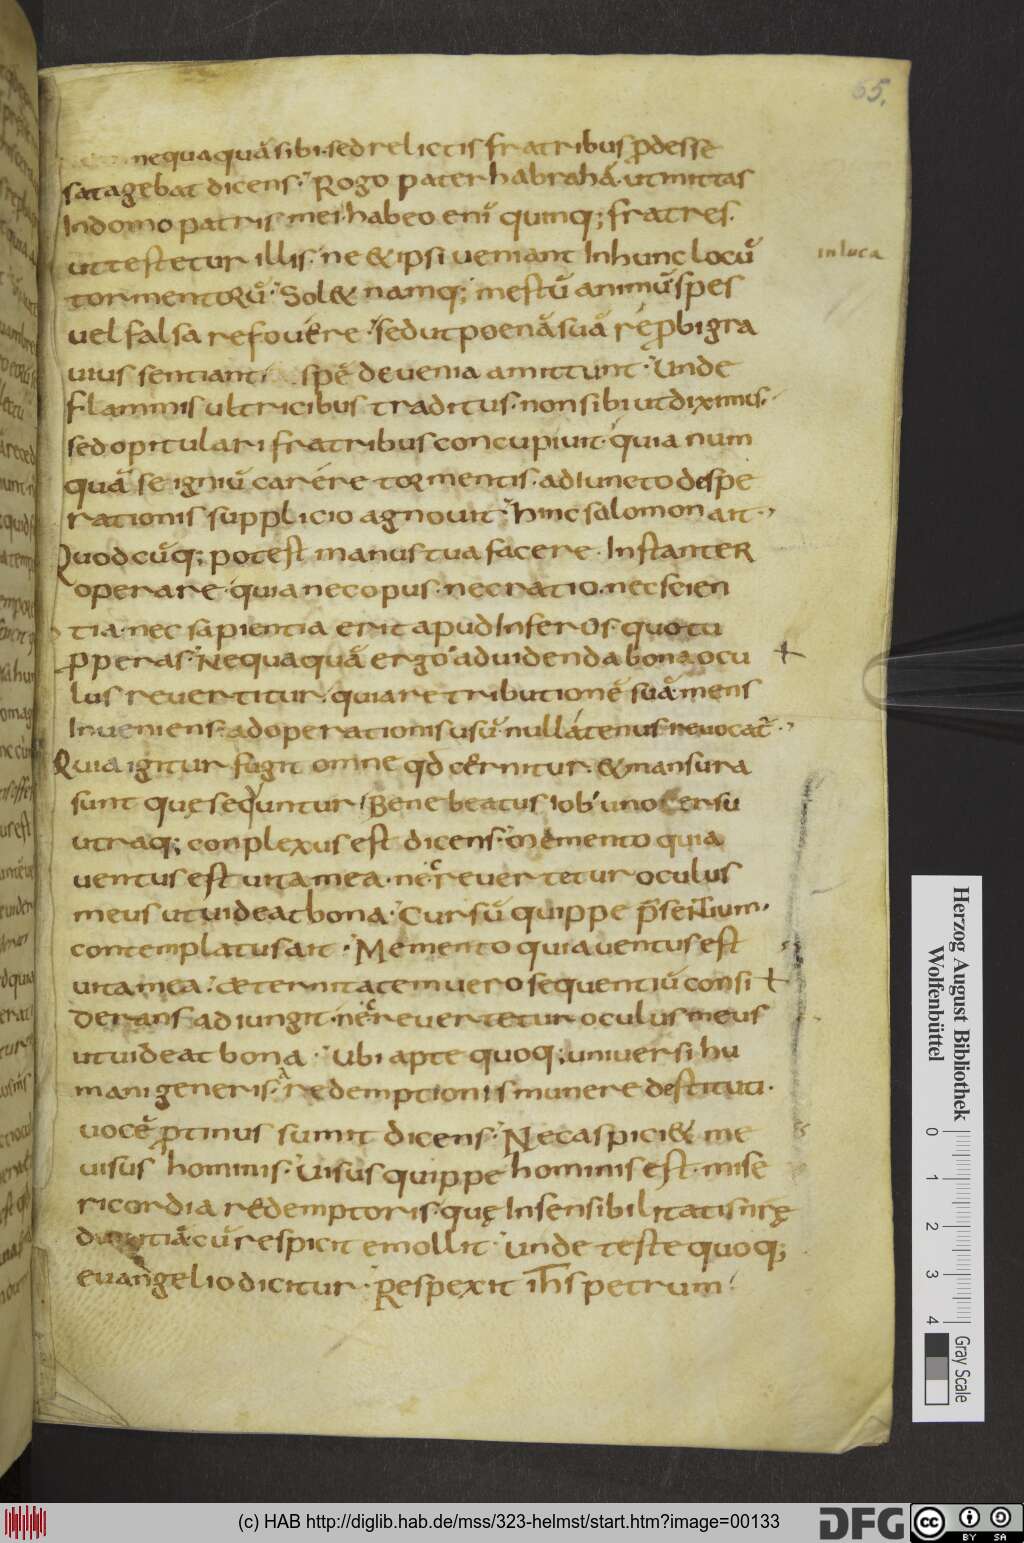 65.
nequaquā sibi. sed relictis fratribus ꝓdesse
satagebat dicens. Rogo pater habrahā. ut mittas
In domo patris mei. habeo enī quinq; fratres.
ut testetur illis. ne & ipsi ueniant In hunc locū
in luca
tormentorū. Sol& namq; mestū animū spes
uel falsa refouere. sed ut poenā suā reꝓbi gra
uius sentiant spē de uenia amittunt. Unde
flammis ultricibus traditus. non sibi ut diximus.
sed opitulari fratribus concupiuit. quia num
quā se igniū carere tormentis. adiuncto despe
rationis supplicio agnouit. hinc salomon ait.
Quodcūq; potest manus tua facere. Instanter
operare. quia nec opus. nec ratio. nec scien
tia. nec sapientia erit apud Inferos. quo tu
ꝓperas. Nequaquā ergo ad uidenda bona ocu
lus reuertitur. quia retributionē suā mens
Inueniens. ad operationis usū nullatenus reuocat̄.
Quia igitur fugit omne qd cernitur. & mansura
sunt quę secuntur. Bene beatus iob uno uersu
utraq; conplexus est dicens. memento quia
uentus est uita mea. nec reuertetur oculus
meus ut uideat bona. Cursū quippe p̄sentium.
contemplatus ait. Memento quia uentus est
uita mea. aeternitatem uero sequentiū consi
derans adiungit. nec reuertetur oculus meus
ut uideat bona. Ubi apte quoq; uniuersi hu
mani generis. a redemptionis munere destituti.
uocē ꝓtinus sumit dicens. Nec aspici& me
uisus hominis. Uisus quippe hominis est. mise
ricordia redemptoris. quę Insensibilitatis nr̄ę
duritiā cū respicit emollit. Unde teste quoq;
euangelio dicitur. Respexit ih̄s petrum
Herzog August Bibliothek
Wolfenbüttel
0 1 2 3 4
Gray Scale
(c) HAB http://diglib.hab.de/mss/323-helmst/start.htm?image=00133
DFG
cc BY SA